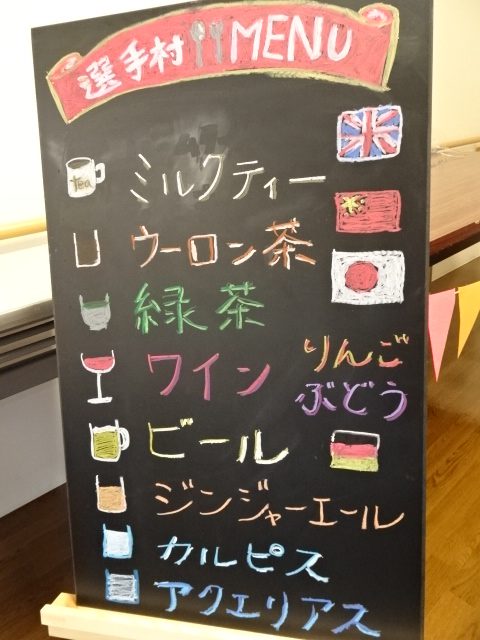 選手村 MENU
tea ミルクティー
ウーロン茶
緑茶
ワイン りんご
ぶどう
ビール
ジンジャーエール
カルピス
アクエリアス